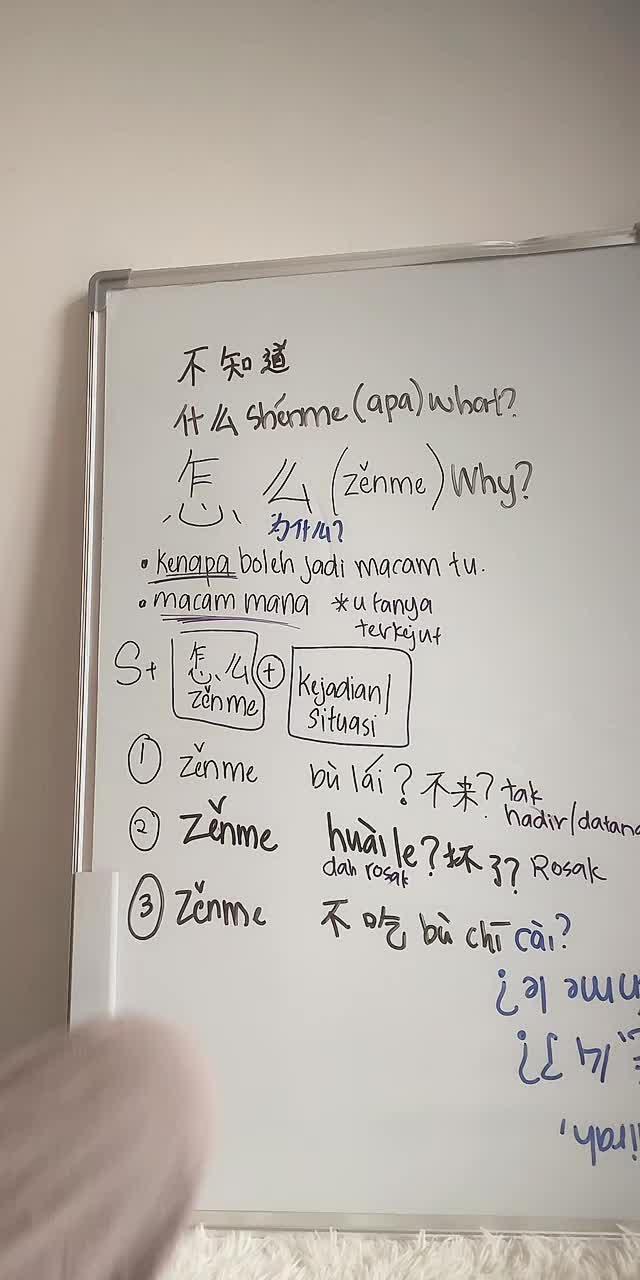 不知道
什么 Shénme (apa) what?
怎么 (zěnme) Why?
为什么?
• kenapa boleh jadi macam tu.
• macam mana *u tanya
terkejut
S+ 怎么 zěnme + kejadian/ situasi
① zěnme bù lái? 不来? tak
hadir/datang
② zěnme huài le? 坏了? Rosak
dah rosak
③ zěnme 不吃 bù chī cài?
nme le?
么了?
irah,